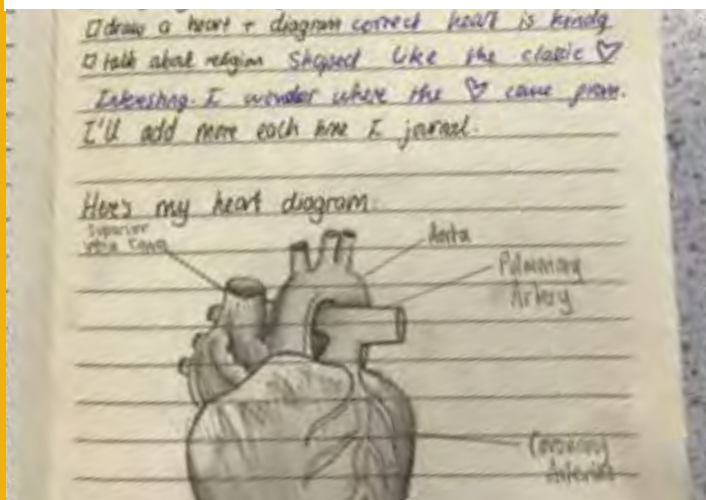 □ draw a heart + diagram correct heart is kinda
□ talk about religion Shaped like the classic ♡
Interesting. I wonder where the ♡ came from.
I'll add more each time I journal.
Here's my heart diagram:
Superior
Vena Cava
Aorta
Pulmonary
Artery
Coronary
Arteries